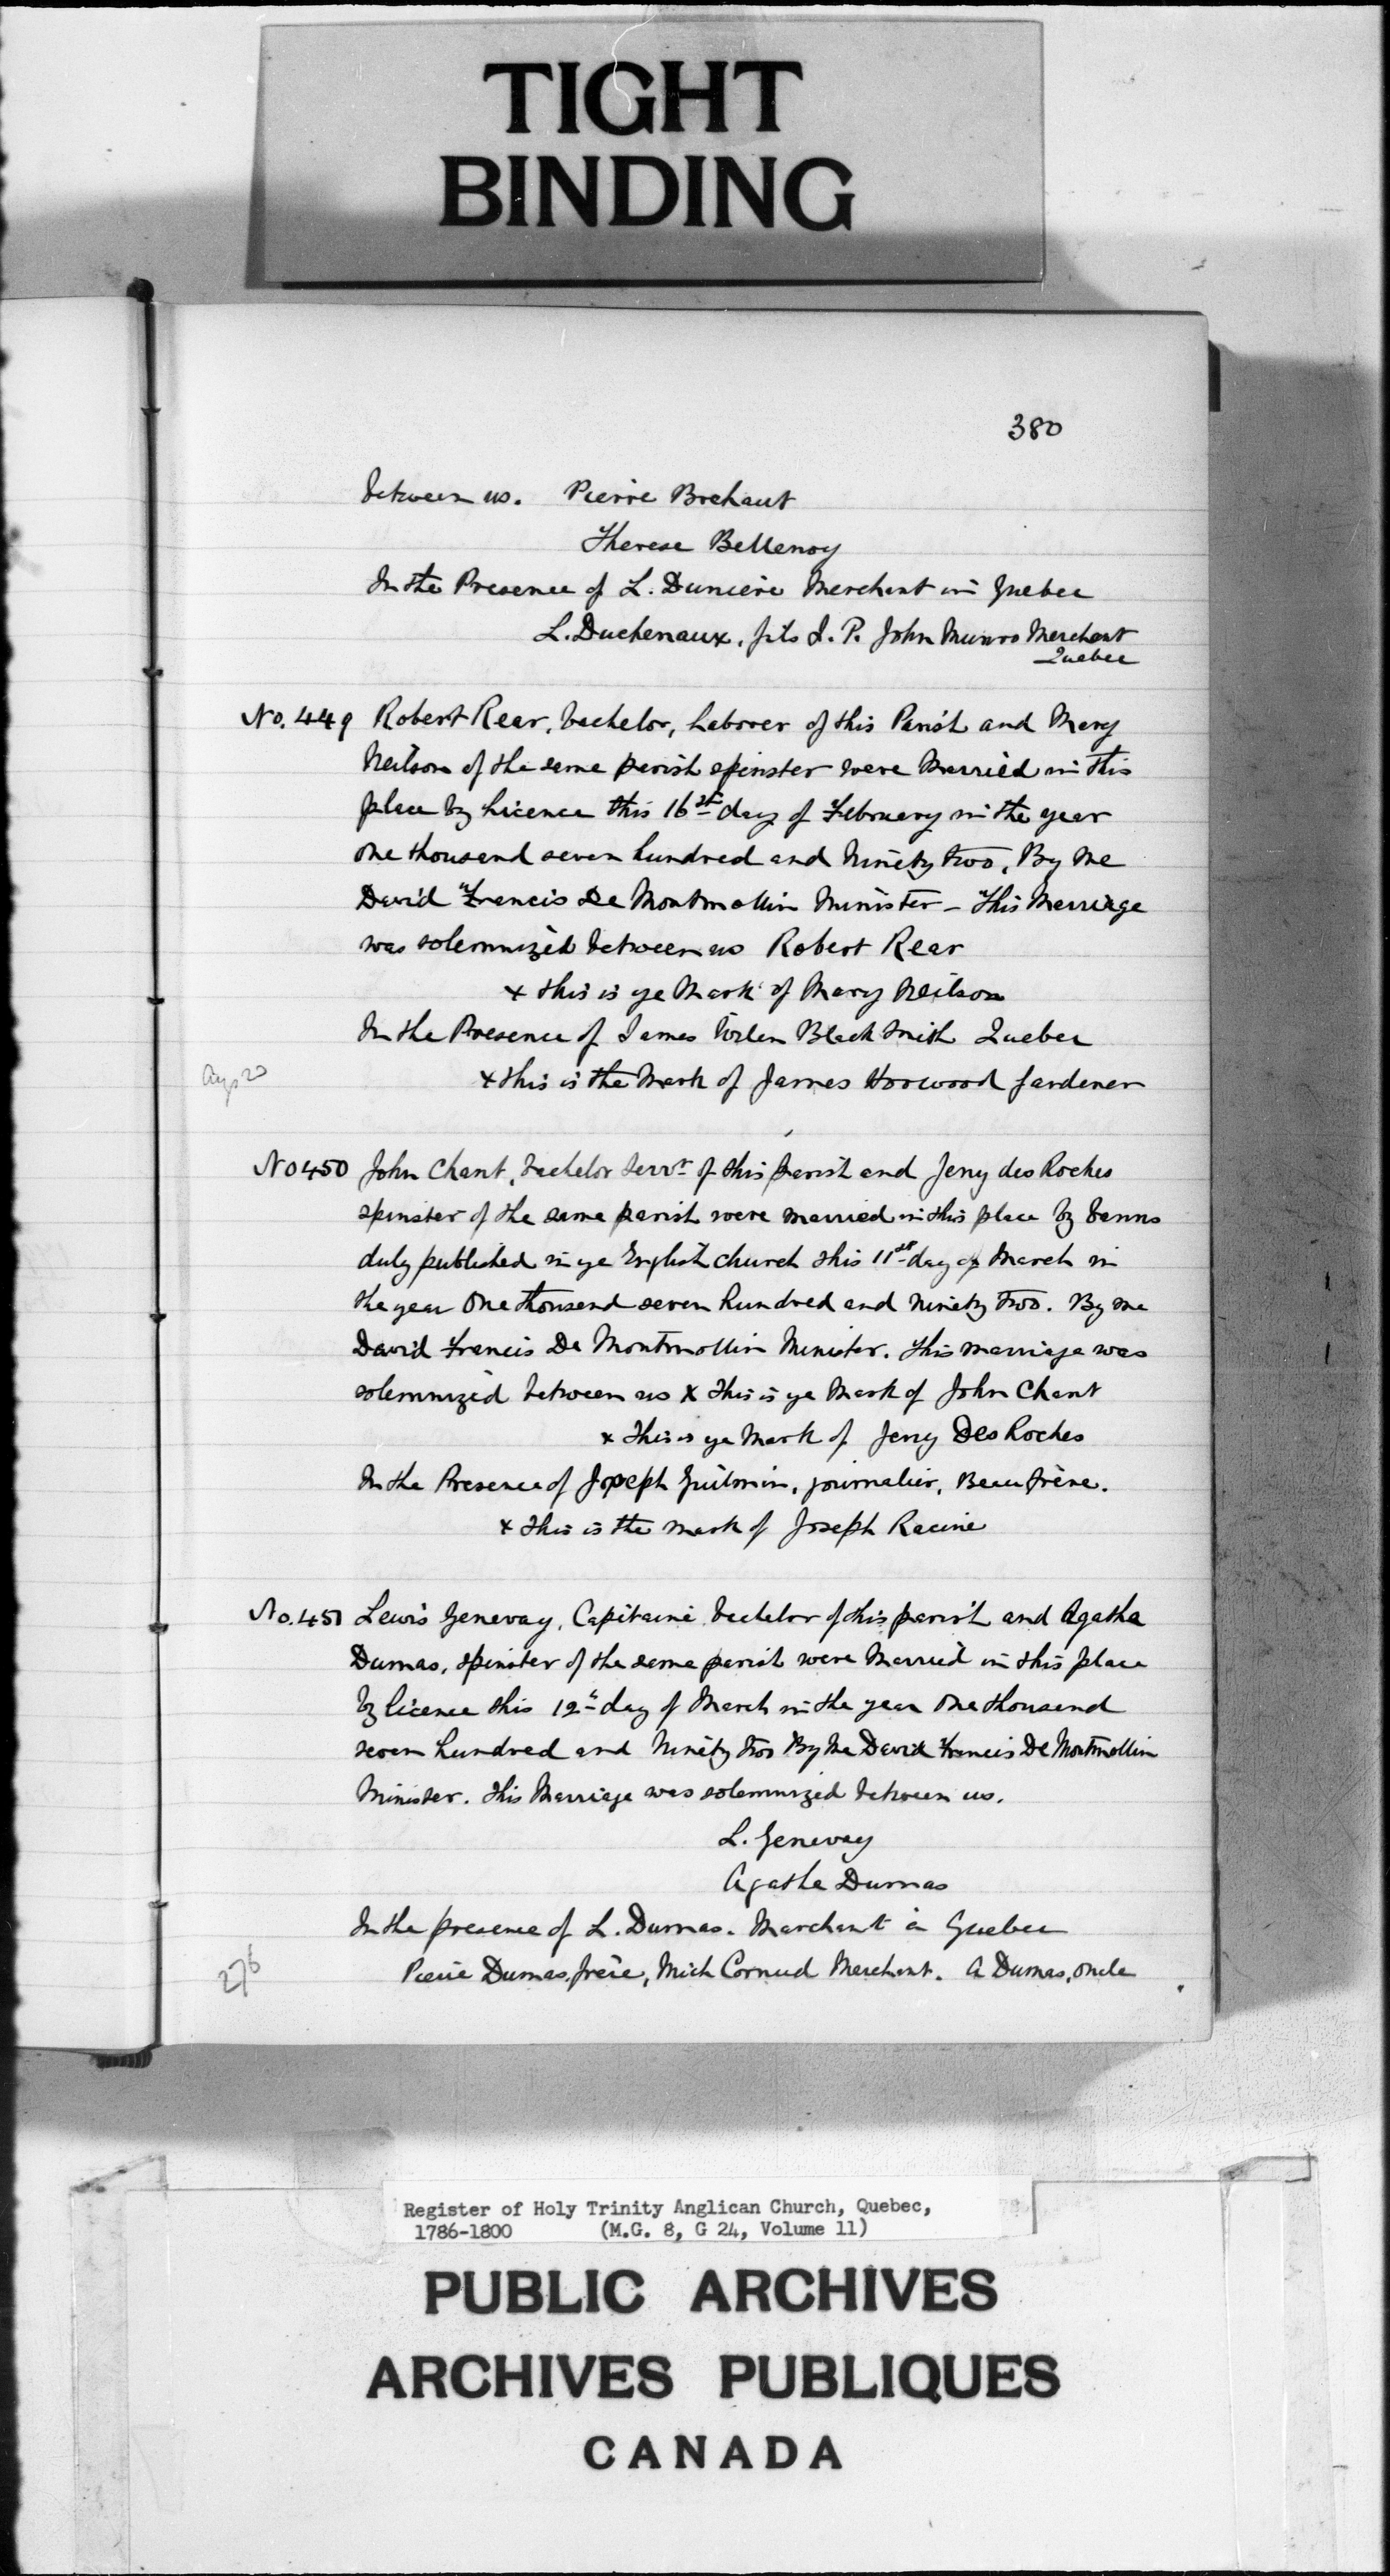 TIGHT
BINDING
380
between us. Pierre Brehaut
Therese Bellenoy
In the Presence of L. Duniere Merchant in Quebec
L. Duchenaux, fils J. P. John Munro Merchant
Quebec
No. 449 Robert Rear, bachelor, Laborer of this Parish and Mary
Neilson of the same parish spinster were Married in this
place by Licence this 16th day of February in the year
one thousand seven hundred and Ninety two, By Me
David Francis De Montmollin Minister - This Marriage
was solemnized between us Robert Rear
x this is ye Mark of Mary Neilson
In the Presence of James Black Smith Quebec
x this is the Mark of James Horwood Gardener
No 450 John Chant, bachelor Servt of this parish and Jeny des Roches
spinster of the same parish were married in this place by banns
duly published in ye English church this 11th day of March in
the year One thousand seven hundred and ninety two. By me
David Francis De Montmollin Minister. This marriage was
solemnized between us X This is ye Mark of John Chant
x This is ye Mark of Jeny Des Roches
In the Presence of Joseph journalier, Beau frère.
x this is the mark of Joseph Racine
No. 451 Lewis Genevay, Capitaine bachelor of this parish and Agatha
Dumas, spinster of the same parish were Married in this place
by licence this 12th day of March in the year One thousand
seven hundred and Ninety two By Me David Francis De Montmollin
Minister. This Marriage was solemnized between us.
L. Genevay
Agathe Dumas
In the presence of L. Dumas. Marchant à Quebec
Pierre Dumas, frère, Mich Cornud Merchant. A Dumas, oncle
276
Register of Holy Trinity Anglican Church, Quebec,
1786-1800 (M.G. 8, G 24, Volume 11)
PUBLIC ARCHIVES
ARCHIVES PUBLIQUES
CANADA